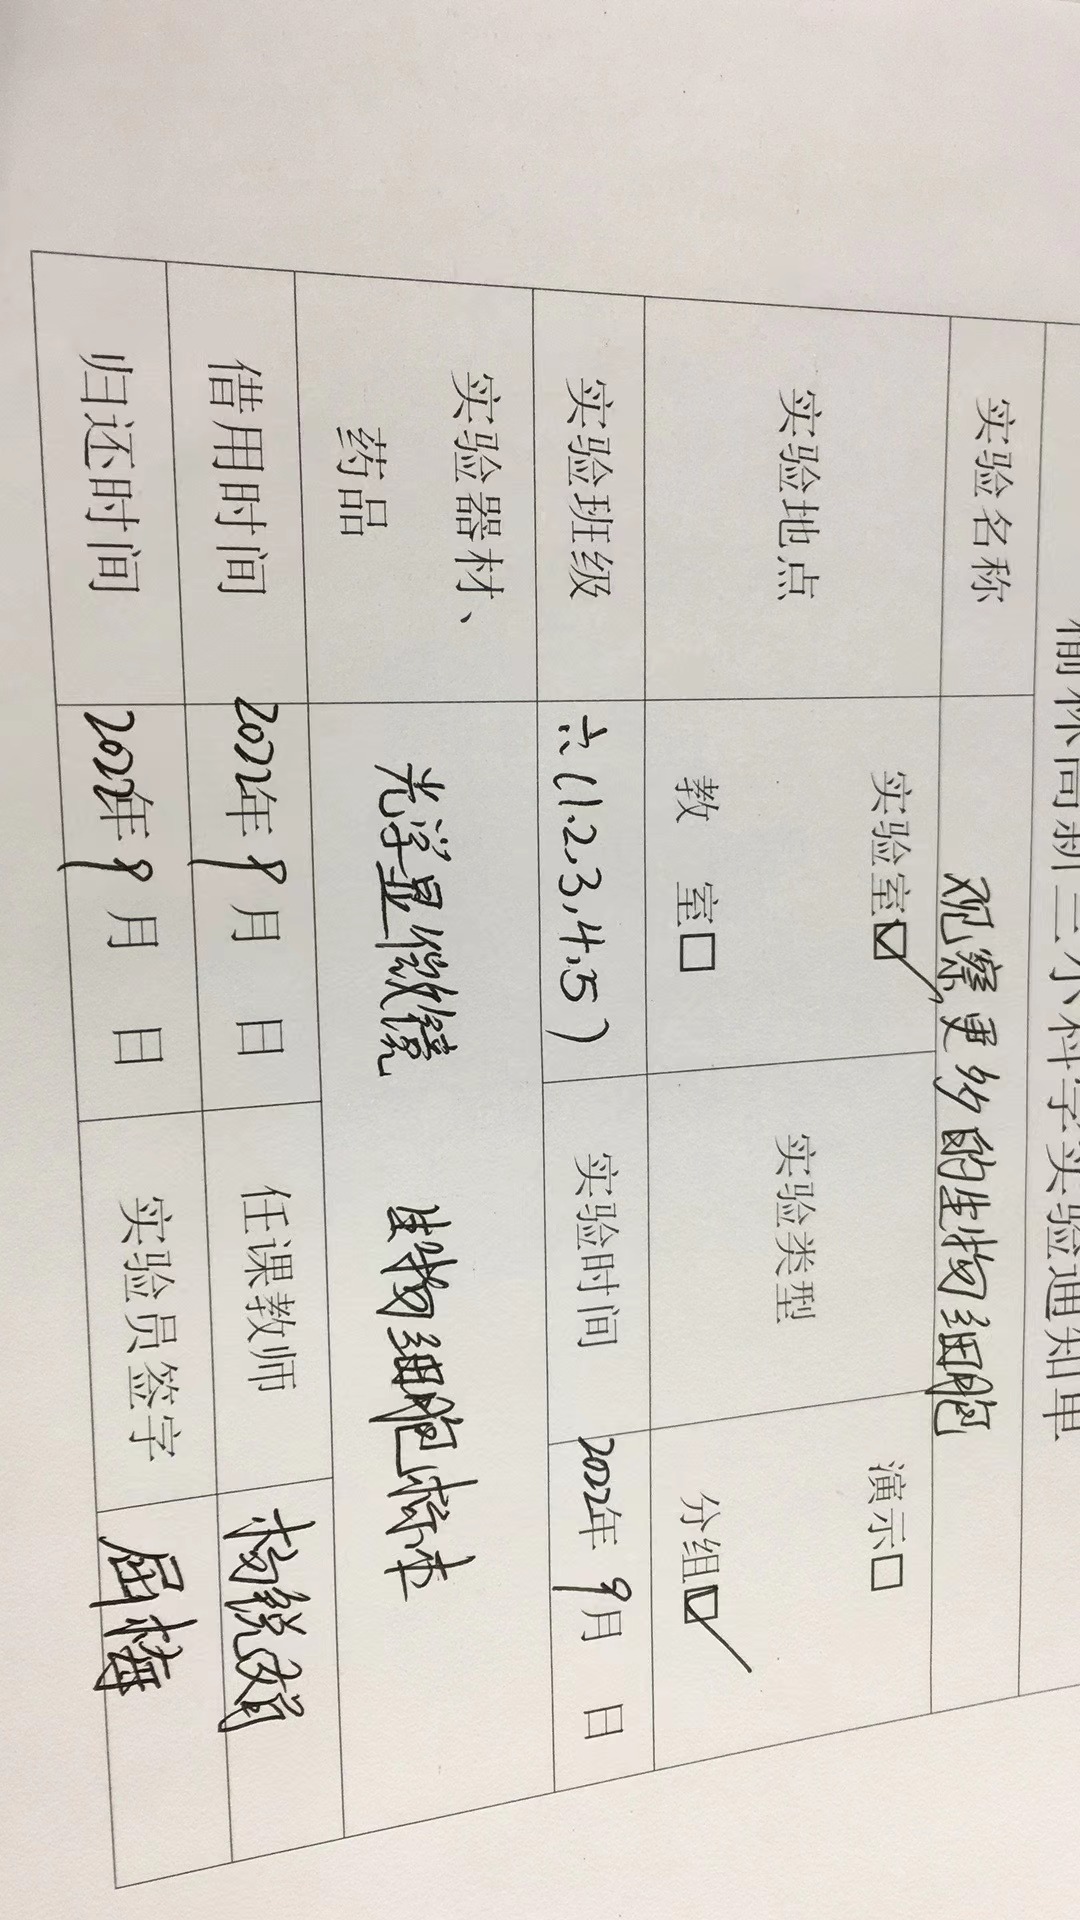 新三小科学实验通知单
实验名称 观察更多的生物细胞
实验地点 实验室☑ 教 室□ 实验类型 演示□ 分组☑
实验班级 六(1.2.3,4.5) 实验时间 2022年9月 日
实验器材、药品 光学显微镜 生物细胞标本
借用时间 2022年9月 日 任课教师 杨
归还时间 2022年9月 日 实验员签字 屈梅